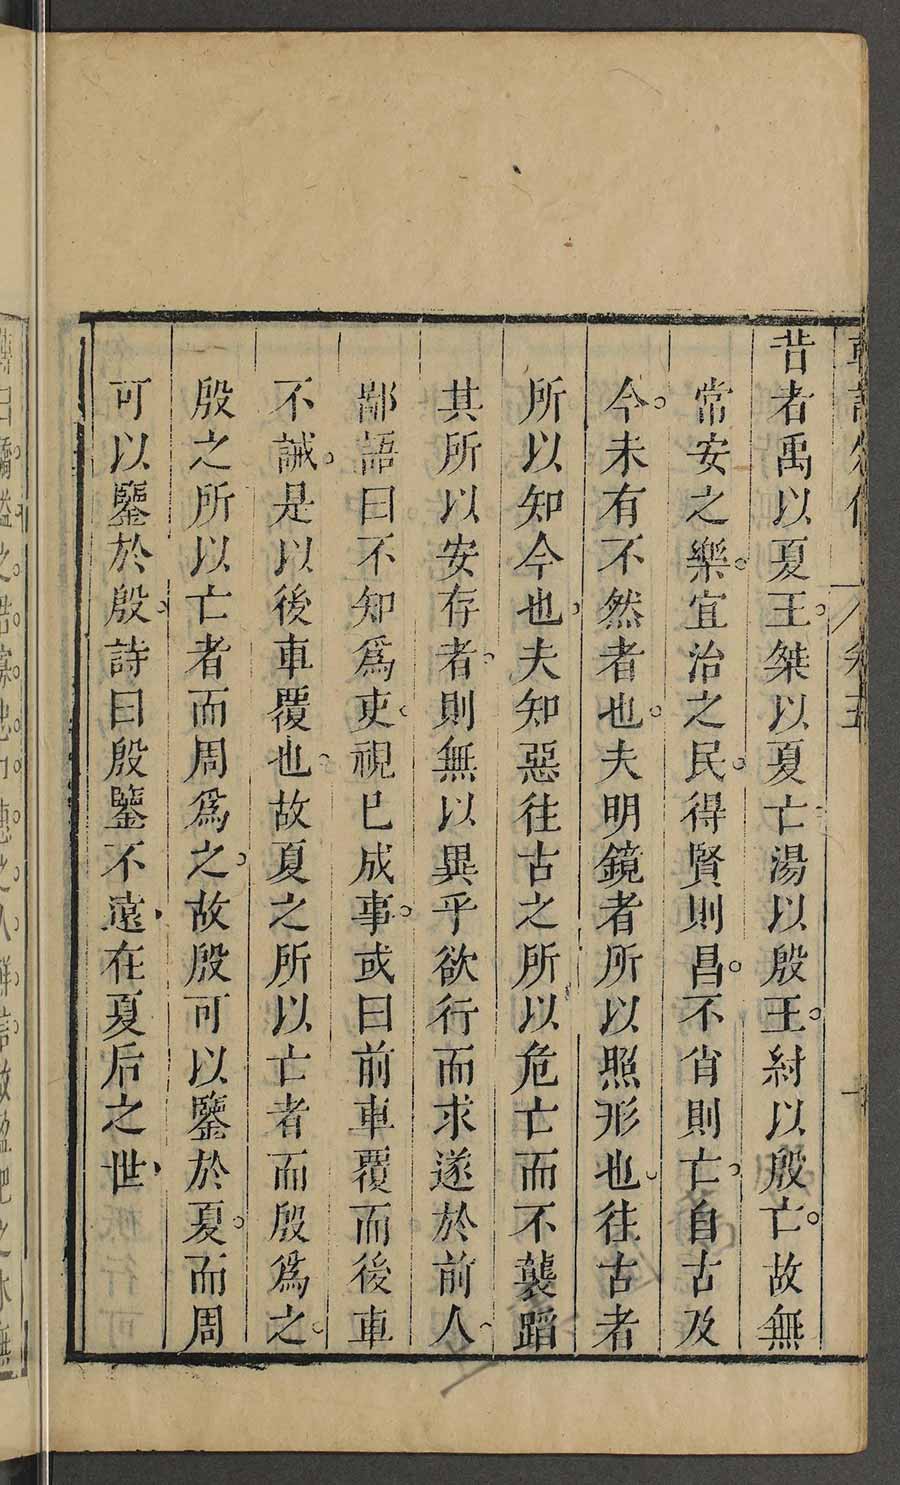 昔者禹以夏王。桀以夏亡湯以殷王。紂以殷亡。故無
常安之樂。宜治之民。得賢則昌。不省則亡。自古及
今。未有不然者也。夫明鏡者所以照形也。往古者
所以知今也。夫知惡往古之所以危亡而不襲蹈
其所以安存者。則無以異乎欲行而求遂於前人。
鄙語曰不知爲吏。視已成事。或曰前車覆而後車
不誡。是以後車覆也。故夏之所以亡者而殷爲之。
殷之所以亡者而周爲之。故殷可以鑒於夏。而周
可以鑒於殷。詩曰殷鑒不遠。在夏后之世。